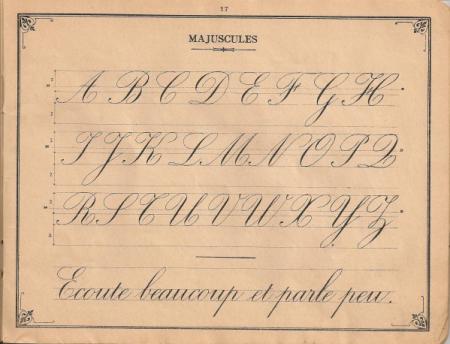 17
MAJUSCULES
A B C D E F G H
I J K L M N O P Q
R S T U V W X Y Z
Ecoute beaucoup et parle peu.